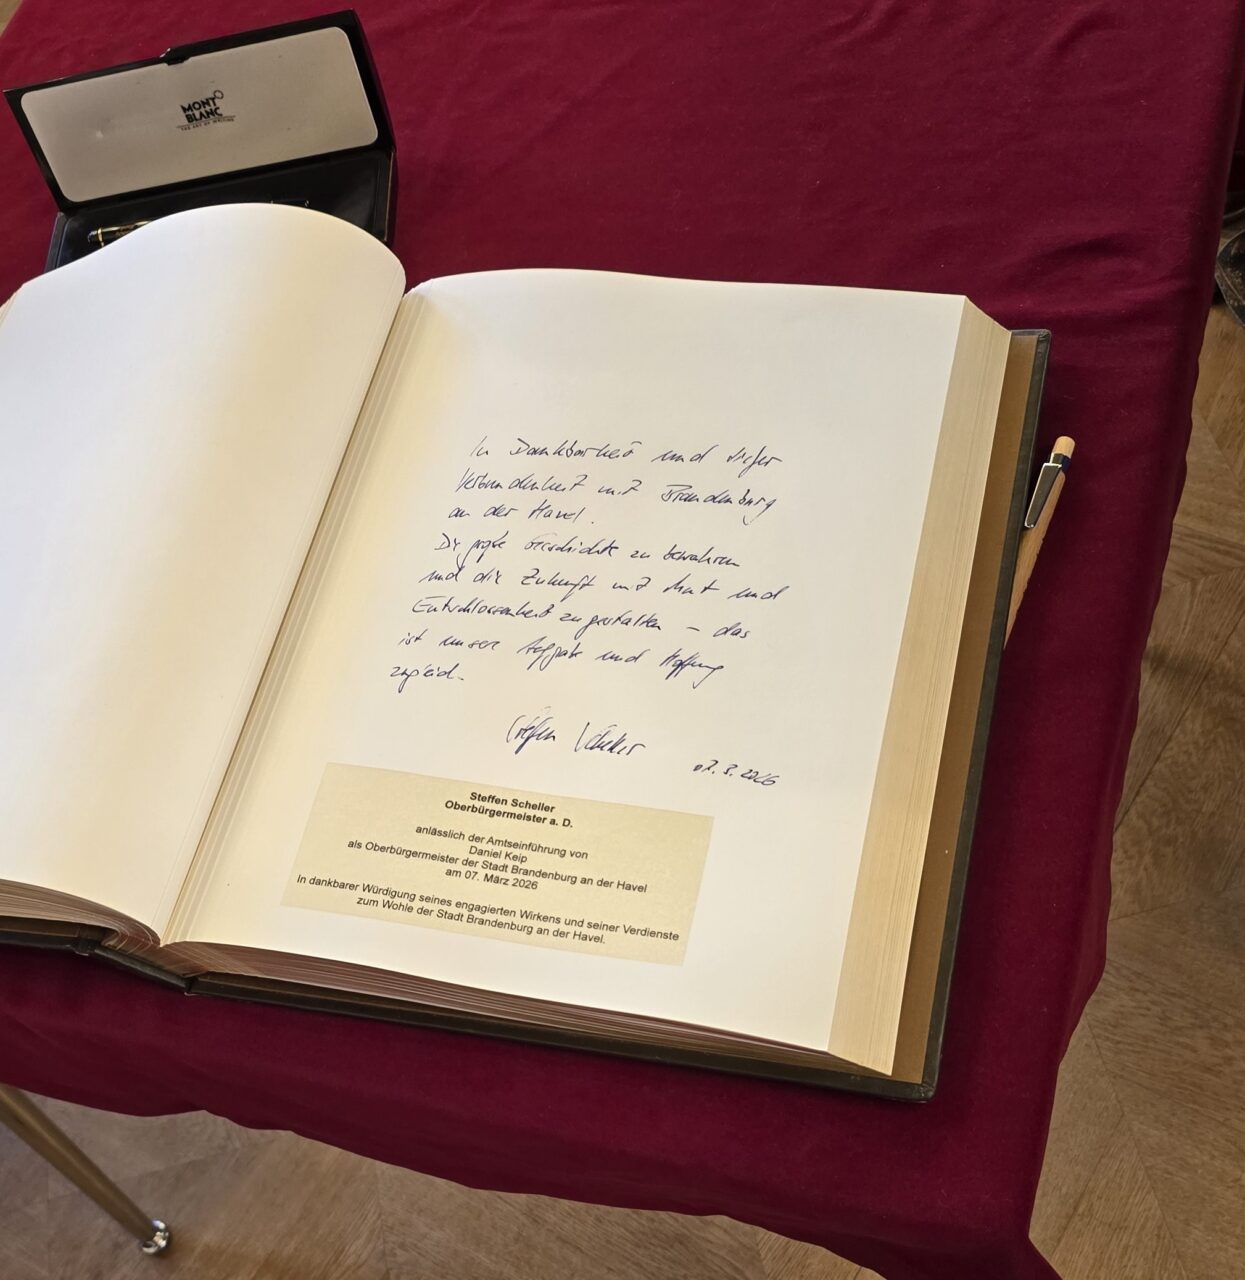 MONT
BLANC
THE ART OF WRITING
In Dankbarkeit und tiefer
Verbundenheit mit Brandenburg
an der Havel.
Die große Geschichte zu bewahren
und die Zukunft mit Mut und
Entschlossenheit zu gestalten – das
ist unsere Aufgabe und Hoffnung
zugleich.
Steffen Scheller
07.3.2026
Steffen Scheller
Oberbürgermeister a. D.
anlässlich der Amtseinführung von
Daniel Keip
als Oberbürgermeister der Stadt Brandenburg an der Havel
am 07. März 2026
In dankbarer Würdigung seines engagierten Wirkens und seiner Verdienste
zum Wohle der Stadt Brandenburg an der Havel.